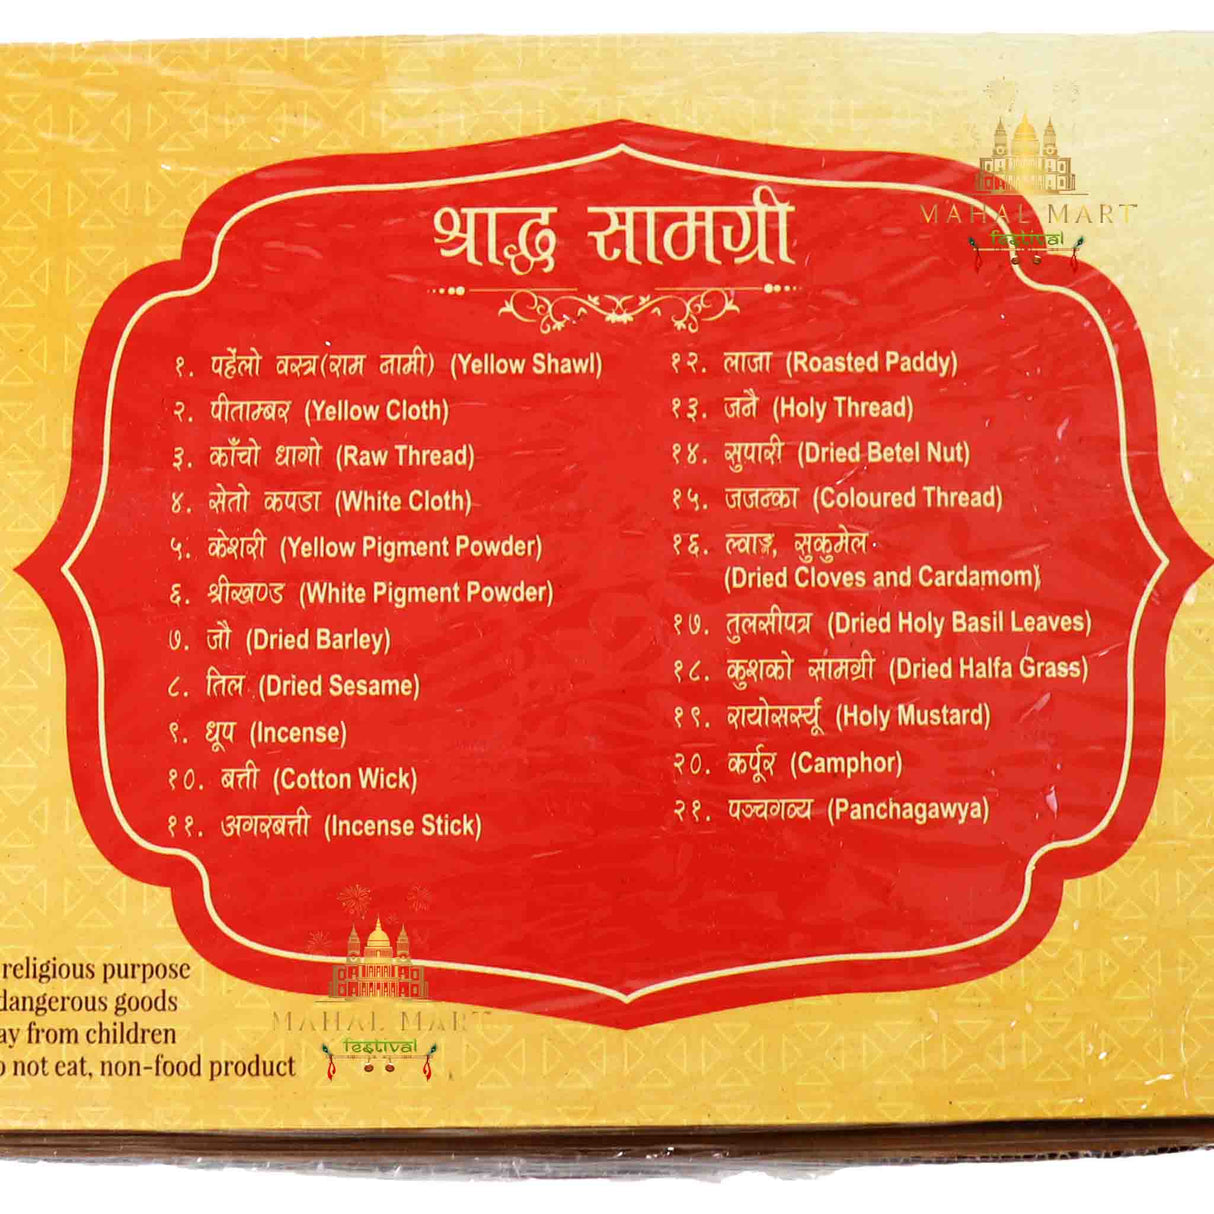 MAHAL MART
festival
श्राद्ध सामग्री
१. पहेंलो वस्त्र(राम नामी) (Yellow Shawl)
२. पीताम्बर (Yellow Cloth)
३. काँचो धागो (Raw Thread)
४. सेतो कपडा (White Cloth)
५. केशरी (Yellow Pigment Powder)
६. श्रीखण्ड (White Pigment Powder)
७. जौ (Dried Barley)
८. तिल (Dried Sesame)
९. धूप (Incense)
१०. बत्ती (Cotton Wick)
११. अगरबत्ती (Incense Stick)
१२. लाजा (Roasted Paddy)
१३. जनै (Holy Thread)
१४. सुपारी (Dried Betel Nut)
१५. जजन्का (Coloured Thread)
१६. ल्वाङ्ग, सुकुमेल
(Dried Cloves and Cardamom)
१७. तुलसीपत्र (Dried Holy Basil Leaves)
१८. कुशको सामग्री (Dried Halfa Grass)
१९. रायोसर्स्यू (Holy Mustard)
२०. कर्पूर (Camphor)
२१. पञ्चगव्य (Panchagawya)
religious purpose
dangerous goods
from children
not eat, non-food product
MAHAL MART
festival